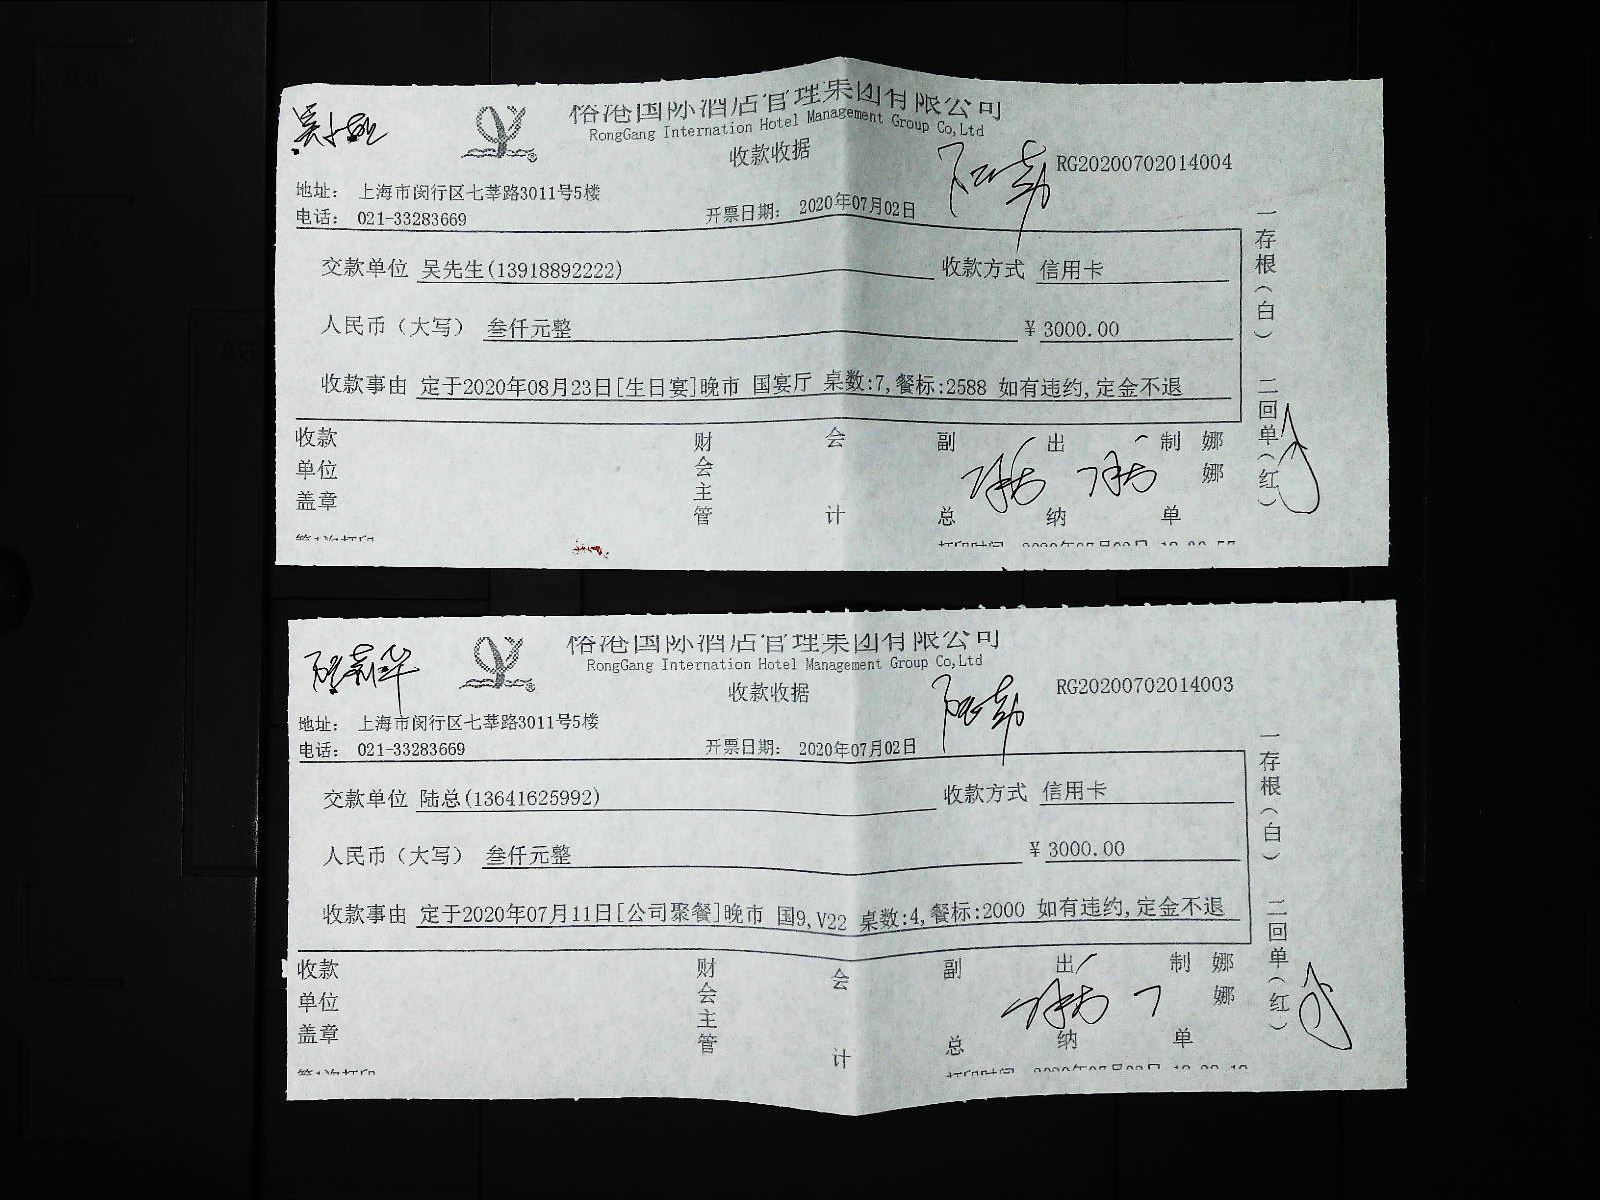 裕港国际酒店管理集团有限公司
RongGang Internation Hotel Management Group Co,Ltd
收款收据
RG20200702014004
地址： 上海市闵行区七莘路3011号5楼
电话： 021-33283669
开票日期： 2020年07月02日
交款单位 吴先生(13918892222)
收款方式 信用卡
人民币（大写） 叁仟元整
¥ 3000.00
收款事由 定于2020年08月23日[生日宴]晚市 国宴厅 桌数:7,餐标:2588 如有违约,定金不退
一存根（白） 二回单（红）
收款单位盖章
财会主管
会计
副总
出纳
制单
娜娜
第1次打印
打印时间 2020年07月02日
裕港国际酒店管理集团有限公司
RongGang Internation Hotel Management Group Co,Ltd
收款收据
RG20200702014003
地址： 上海市闵行区七莘路3011号5楼
电话： 021-33283669
开票日期： 2020年07月02日
交款单位 陆总(13641625992)
收款方式 信用卡
人民币（大写） 叁仟元整
¥ 3000.00
收款事由 定于2020年07月11日[公司聚餐]晚市 国9,V22 桌数:4,餐标:2000 如有违约,定金不退
一存根（白） 二回单（红）
收款单位盖章
财会主管
会计
副总
出纳
制单
娜娜
第1次打印
打印时间 2020年07月02日